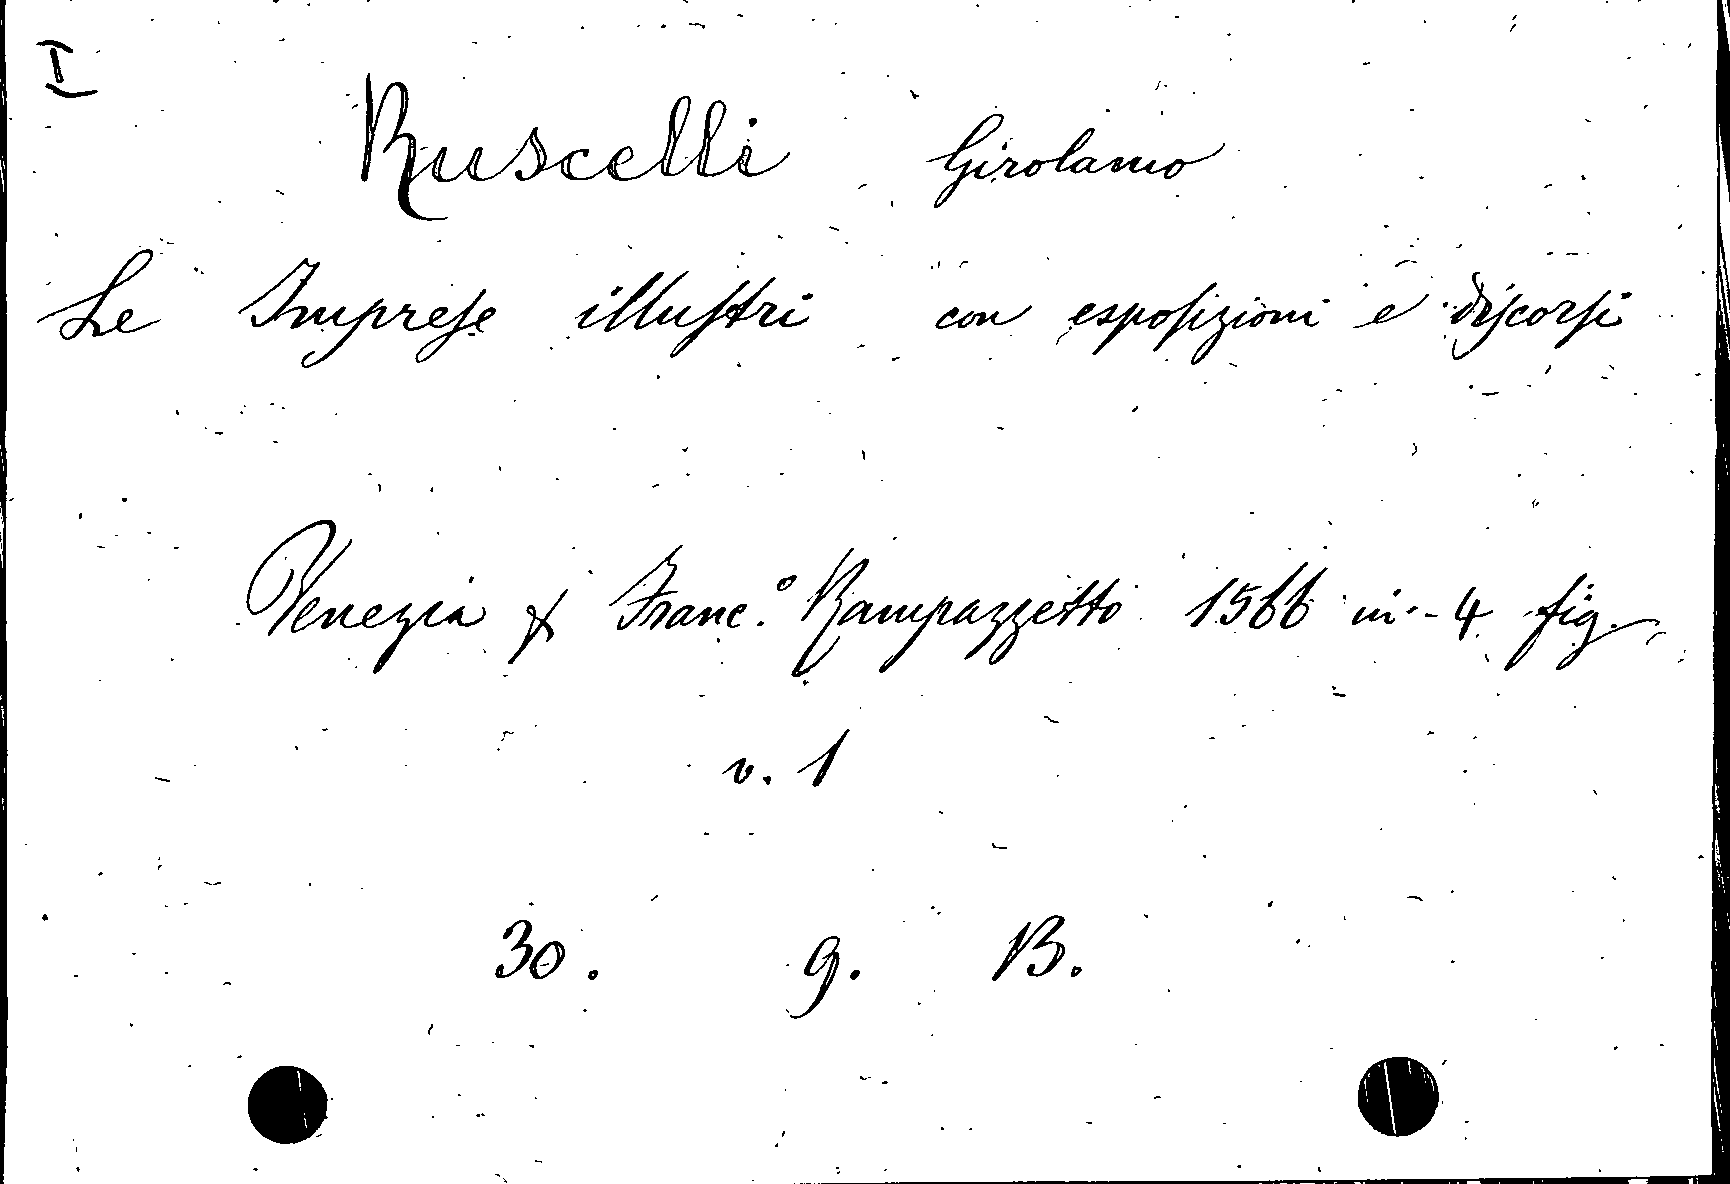 I
Ruscelli Girolamo
Le Impreſe illuſtri con eſpoſizioni e diſcorſi
Venezia & Franc.º Rampazzetto 1566 in-4 fig.
v. 1
30. g. B.